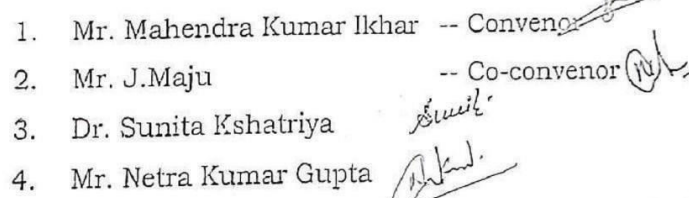 1. Mr. Mahendra Kumar Ikhar -- Convenor
2. Mr. J.Maju -- Co-convenor
3. Dr. Sunita Kshatriya
4. Mr. Netra Kumar Gupta